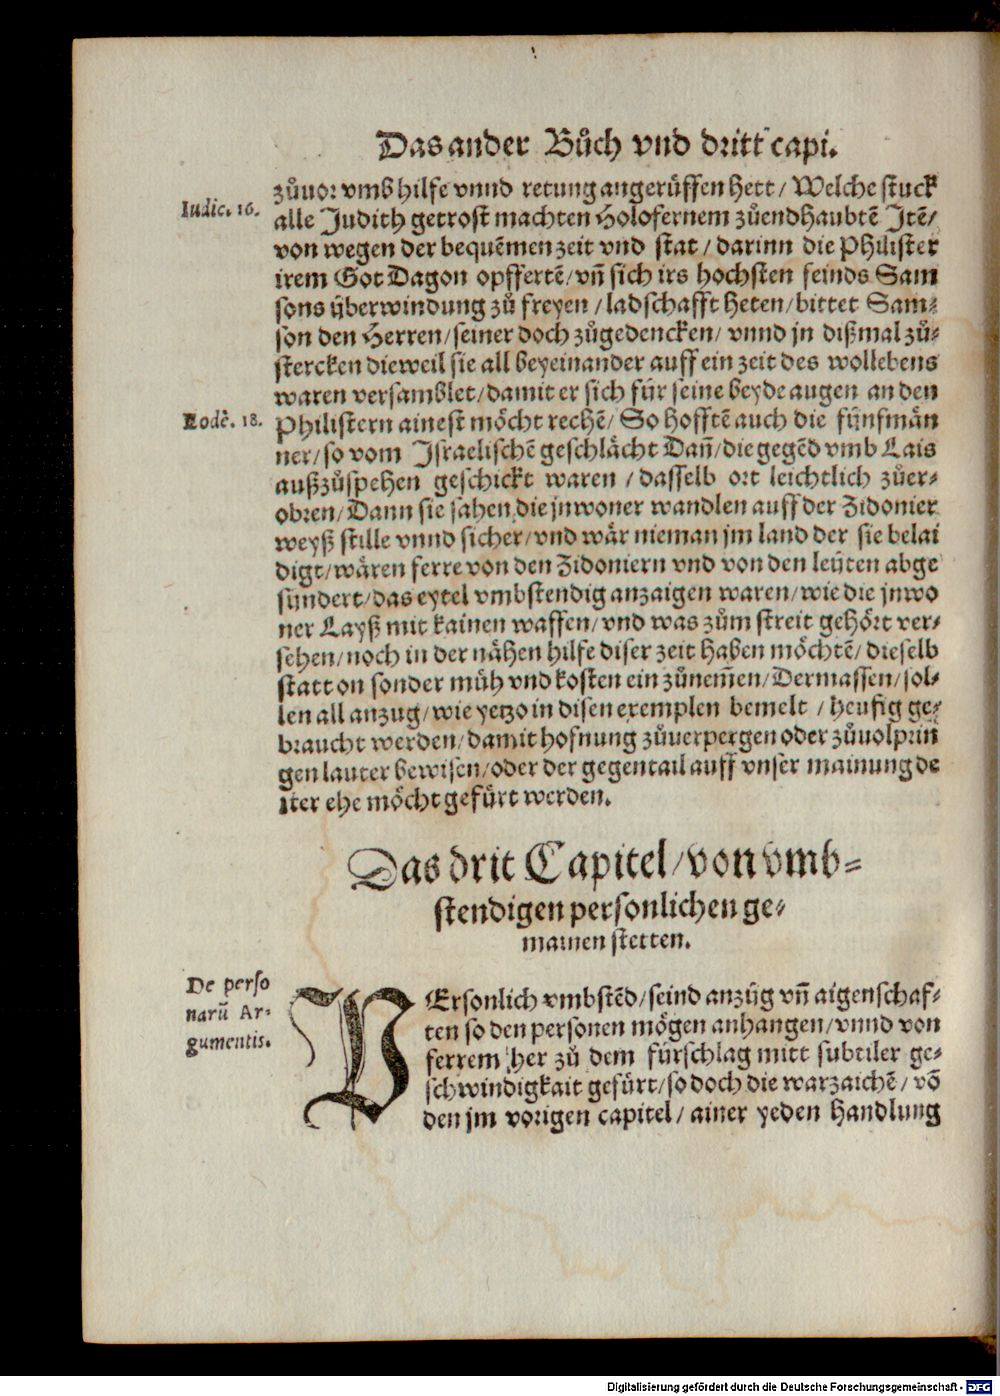 Das ander Bůch vnd dritt capi.
zůuor vmb hilfe vnnd retung angerüffen hett / Welche stuck
Iudic. 16.
alle Judith getrost machten Holofernem zůendhaubtē Jtē/
von wegen der bequēmen zeit vnd stat / darinn die Philister
irem Got Dagon opffertē/ vñ sich irs hochsten feinds Sam
sons überwindung zů freyen / ladschafft heten/ bittet Sam-
son den Herren/ seiner doch zůgedencken/ vnnd jn dißmal zů-
stercken dieweil sie all beyeinander auff ein zeit des wollebens
waren versamblet/ damit er sich für seine beyde augen an den
Eodē. 18.
Philistern ainest möcht rechē/ So hofftē auch die fünfmän
ner/ so vom Israelischē geschlächt Dañ/ die gegēd vmb Lais
außzůspehen geschickt waren / dasselb ort leichtlich zůer-
obren/ Dann sie sahen die jnwoner wandlen auff der Zidonier
weyß stille vnnd sicher/ vnd wär nieman jm land der sie belai
digt/ wären ferre von den Zidoniern vnd von den leüten abge
sündert/ das eytel vmbstendig anzaigen waren/ wie die jnwo
ner Layß mit kainen waffen/ vnd was zům streit gehört ver-
sehen/ noch in der nähen hilfe diser zeit haben möchtē/ dieselb
statt on sonder müh vnd kosten ein zůnem̃en/ Dermassen/ sol-
len all anzug/ wie yetzo in disen exemplen bemelt / heufig ge-
braucht werden/ damit hofnung zůuerpergen oder zůuolprin
gen lauter bewisen/ oder der gegentail auff vnser mainung de
ster ehe möcht gefürt werden.
Das drit Capitel/ von vmb-
stendigen personlichen ge-
mainen stetten.
De perso
narū Ar-
gumentis.
PErsonlich vmbstēd/ seind anzüg vñ aigenschaf-
ten so den personen mögen anhangen/ vnnd von
ferrem her zů dem fürschlag mitt subtiler ge-
schwindigkait gefürt/ so doch die warzaichē/ vō
den jm vorigen capitel/ ainer yeden handlung
Digitalisierung gefördert durch die Deutsche Forschungsgemeinschaft - DFG